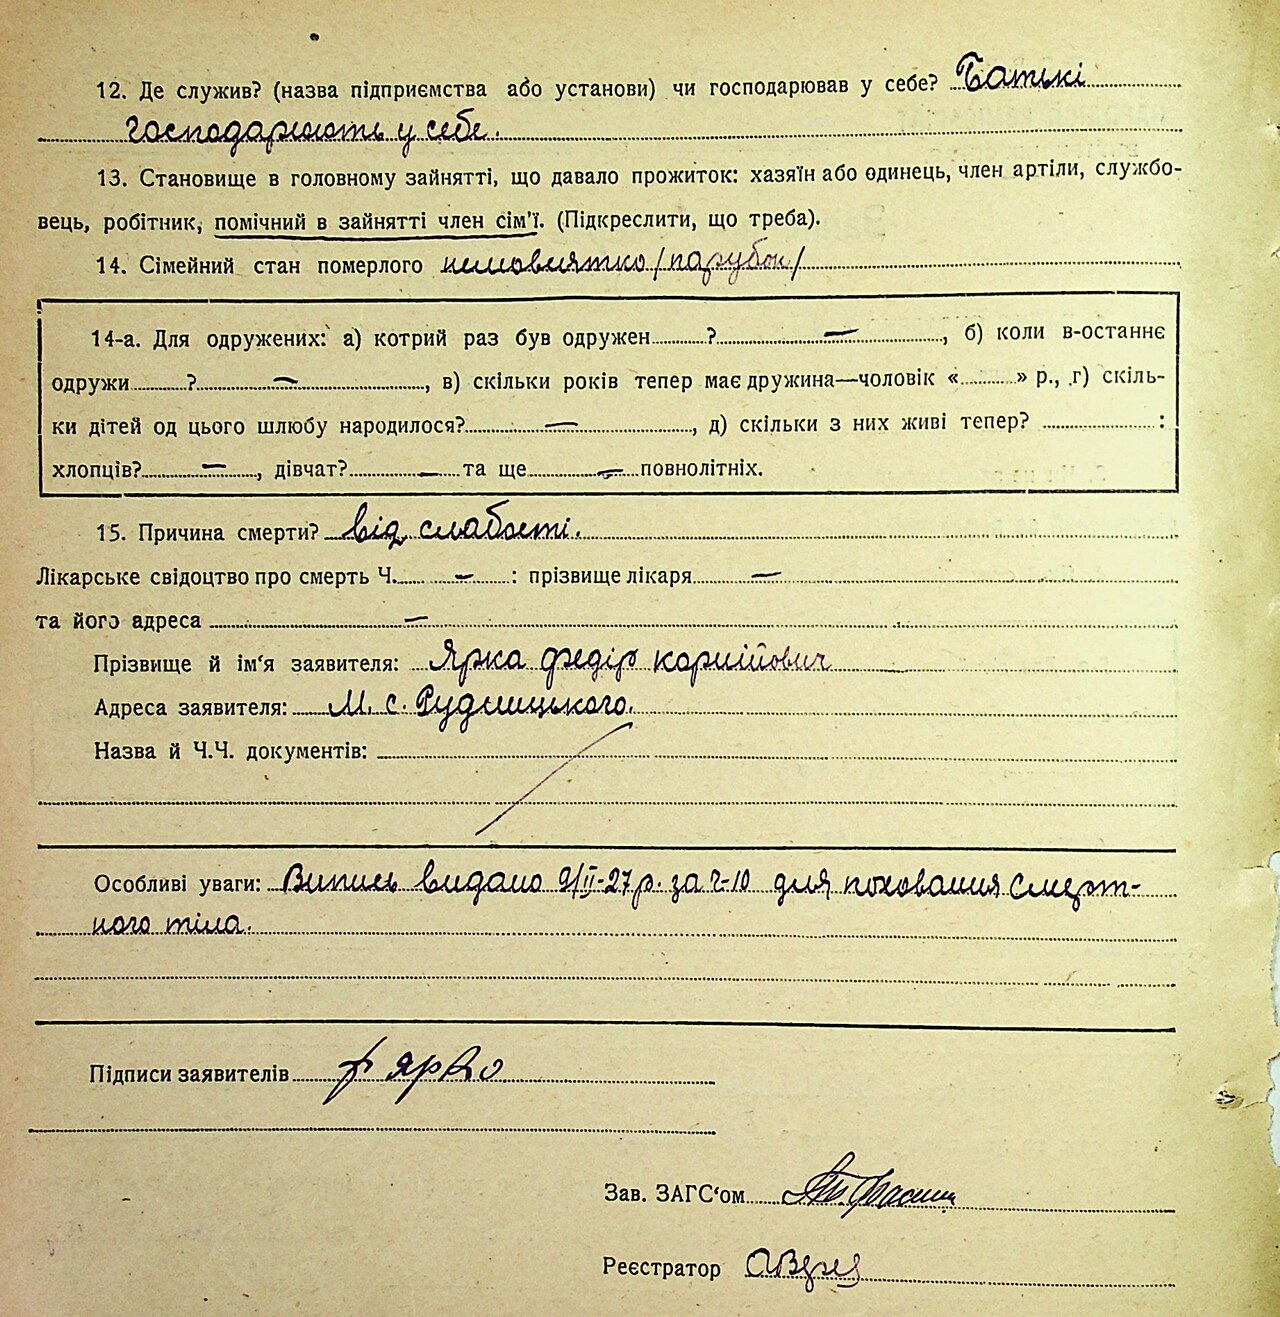 12. Де служив? (назва підприємства або установи) чи господарював у себе? Батькі
господарюють у себе.
13. Становище в головному зайнятті, що давало прожиток: хазяїн або одинець, член артіли, службо-
вець, робітник, помічний в зайнятті член сім'ї. (Підкреслити, що треба).
14. Сімейний стан померлого немовлятко /парубок/
14-а. Для одружених: а) котрий раз був одружен ? —, б) коли в-останнє
одружи ? —, в) скільки років тепер має дружина—чоловік « » р., г) скіль-
ки дітей од цього шлюбу народилося? —, д) скільки з них живі тепер? :
хлопців? —, дівчат? — та ще — повнолітніх.
15. Причина смерти? від слабості.
Лікарське свідоцтво про смерть Ч. — : прізвище лікаря —
та його адреса —
Прізвище й ім'я заявителя: Ярка Федір Корнійович
Адреса заявителя: М. с. Рудницького.
Назва й Ч.Ч. документів:
Особливі уваги: Випись видано 9/II-27 р. за ч-10 для поховання смерт-
ного тіла.
Підписи заявителів Ф Ярко
Зав. ЗАГС'ом
Реєстратор